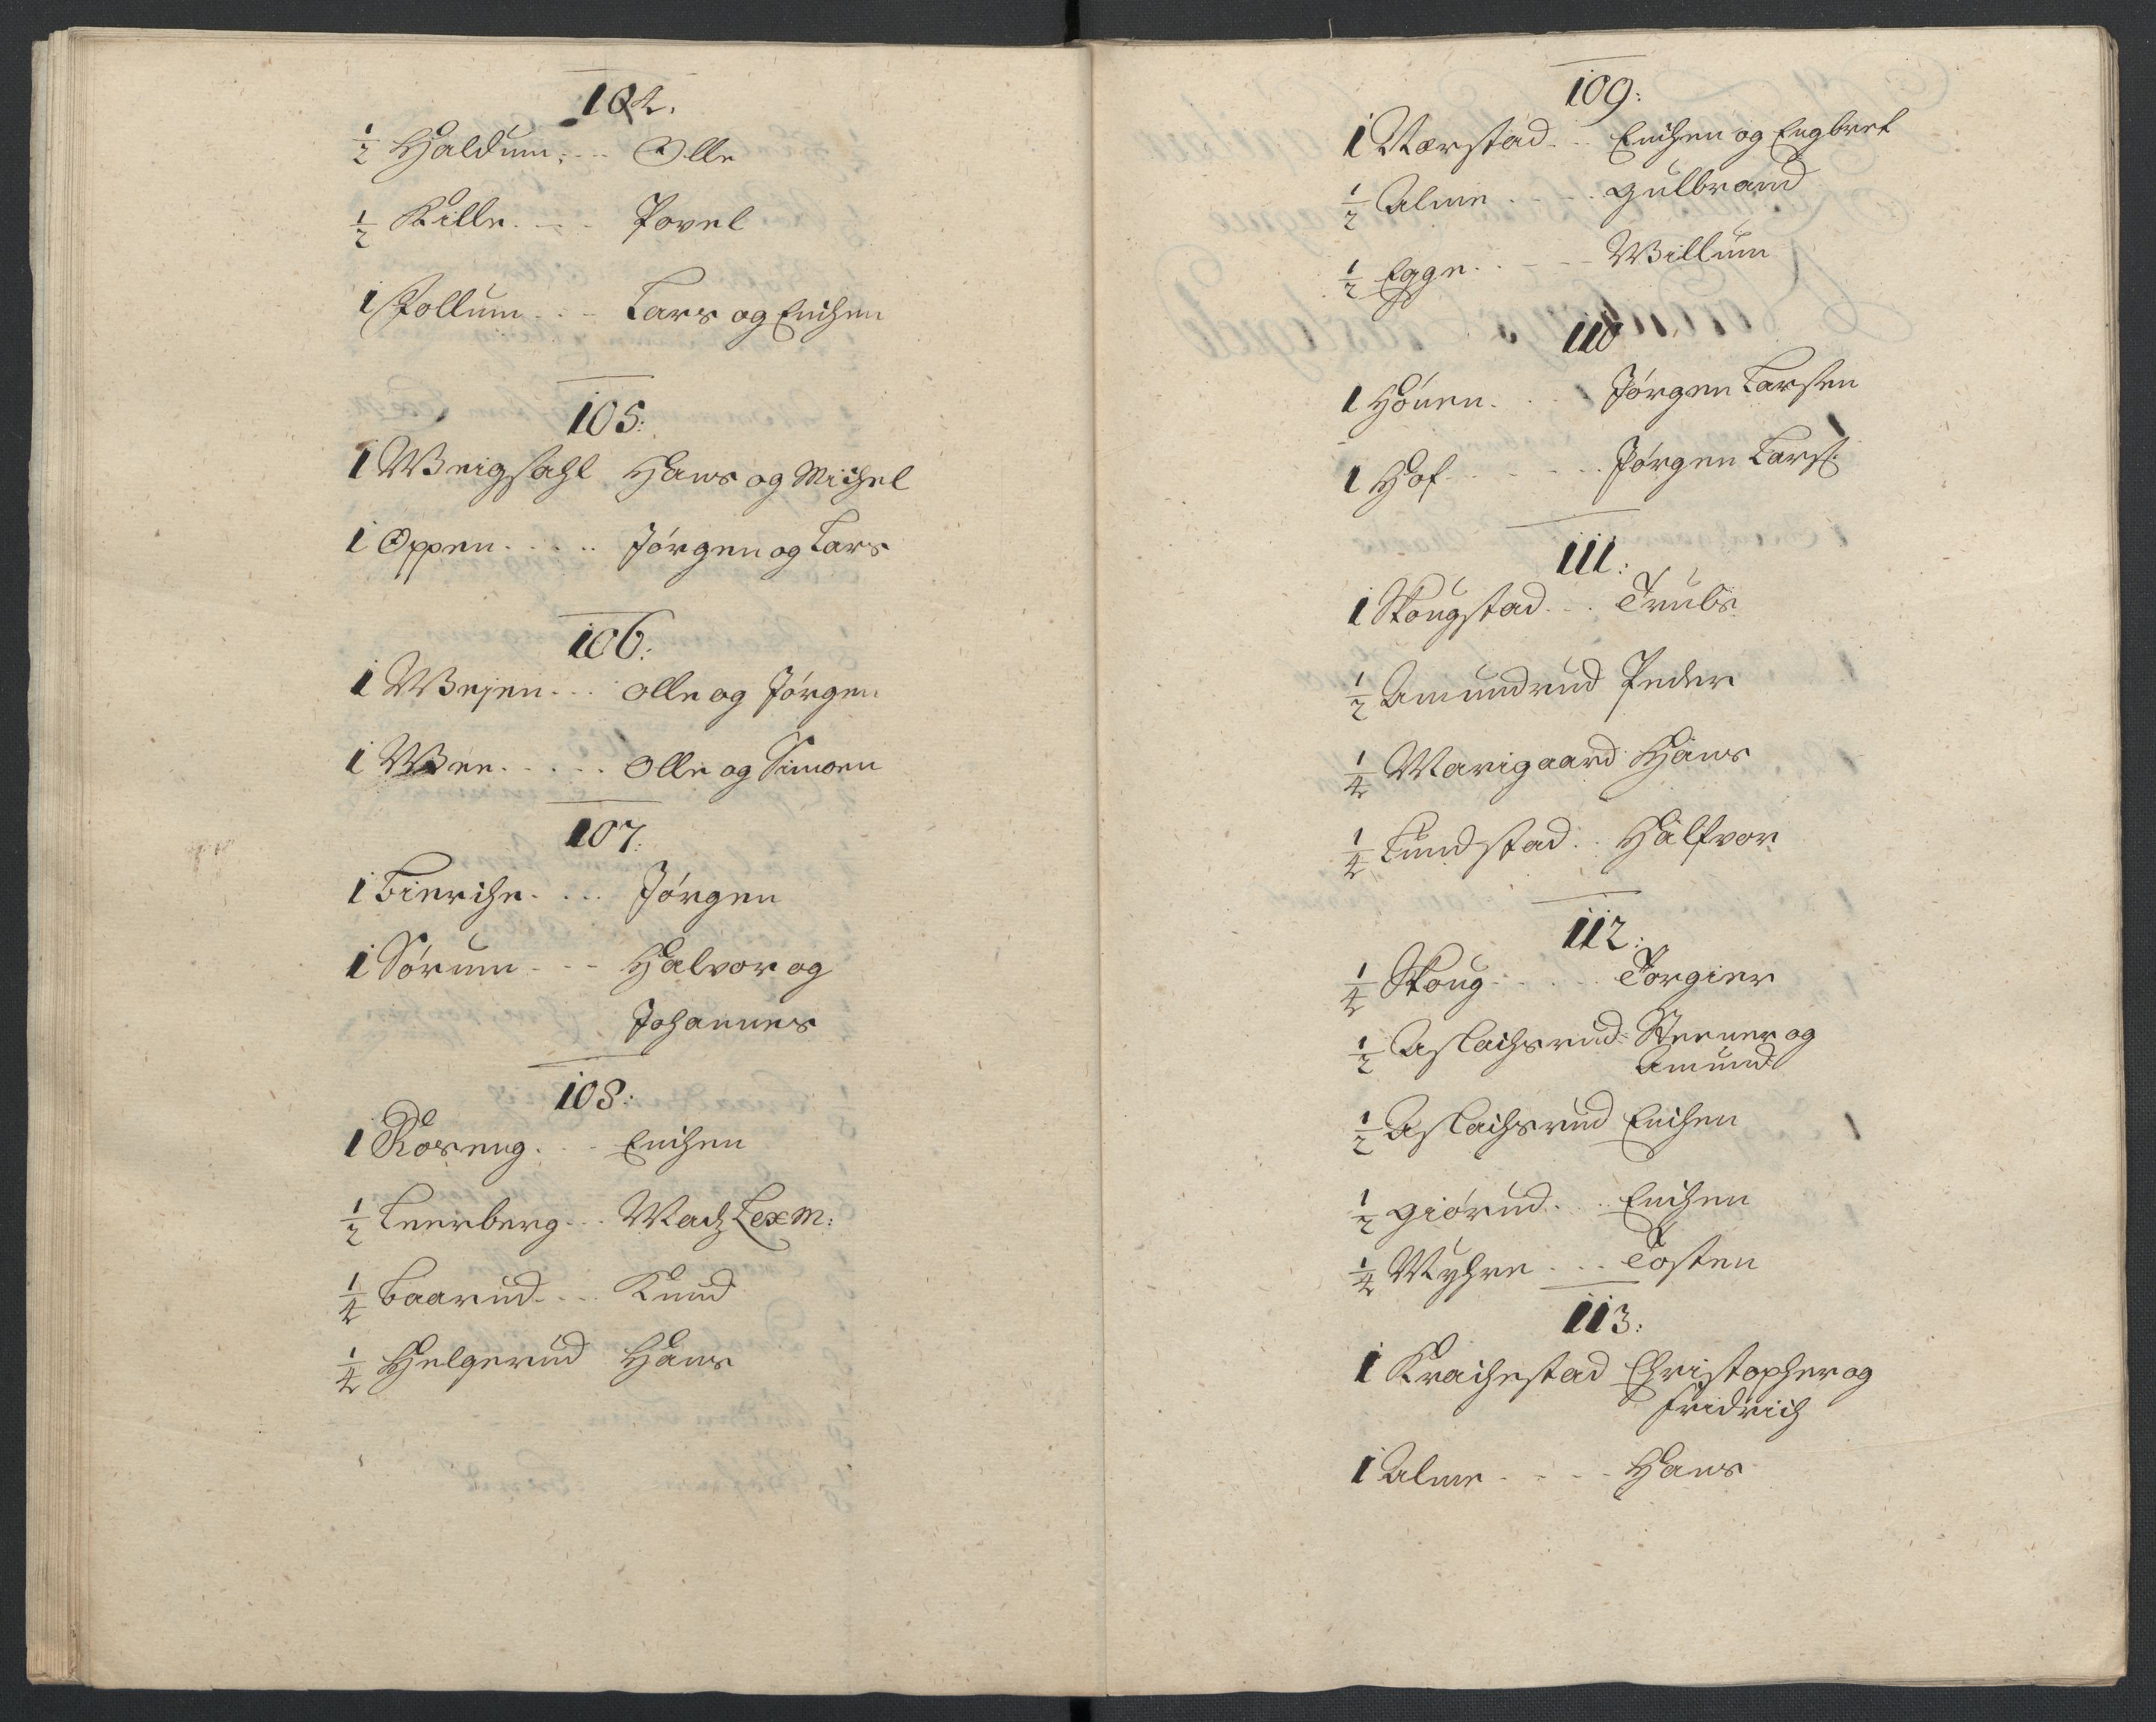 102.
1/2 Haldum; Olle
1/2 Kille. Povel
1 Follum Lars og Erichen
105:
1 Weigsahl Hans og Michel
1 Oppen. Jörgen og Lars
106:
1 Wejen. Olle og Jörgen
1 Wee. Olle og Simoen
107:
1 Bierche. Jörgen
1 Sörum Halvor og
Johannes
108:
1 Röseng. Erichen
1/2 Leerberg Madz LexM:
1/4 Baarud Knud
1/4 Helgerud Hans
109:
1 Nærstad Erichen og Engbret
1/2 Alme Gulbrand
1/2 Egge Willum
110
1 Hönen. Jörgen Larsen
1 Hof Jörgen Lars:
111:
1 Skougstad Truls
1/2 Amundrud Peder
1/4 Marigaard Hans
1/4 Lundstad Halfvor
112:
1/4 Skoug Torgier
1/2 Aslachsrud Steener og
Amund
1/2 Aslachsrud Erichen
1/2 Giörud. Erichen
1/4 Myhre Tosten
113:
1 Krachestad Christopher og
Fridrich
1 Alme Hans